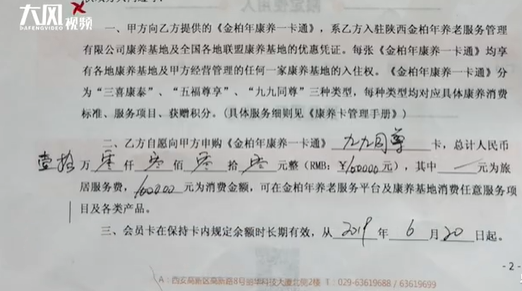 大风视频
DAFENGVIDEO
一、甲方向乙方提供的《金柏年康养一卡通》，系乙方入驻陕西金柏年养老服务管理
有限公司康养基地及全国各地联盟康养基地的优惠凭证。每张《金柏年康养一卡通》均享
有各地康养基地及甲方经营管理的任何一家康养基地的入住权。《金柏年康养一卡通》分
为“三喜康泰”、“五福尊享”、“九九同尊”三种类型，每种类型均对应具体康养消费
标准、服务项目、获赠积分。（具体服务细则见《康养卡管理手册》）
二、乙方自愿向甲方申购《金柏年康养一卡通》九九同尊卡，总计人民币
壹拾万零仟零佰零拾零元整（RMB：￥100000元），其中 一 元为旅
居服务费，100000元为消费金额，可在金柏年养老服务平台及康养基地消费任意服务项
目及各类产品。
三、会员卡在保持卡内规定余额时长期有效，从2019年6月20日起。
- 2 -
A：西安高新区高新路8号 科技大厦北院2楼 T：029-63619688 / 63619699